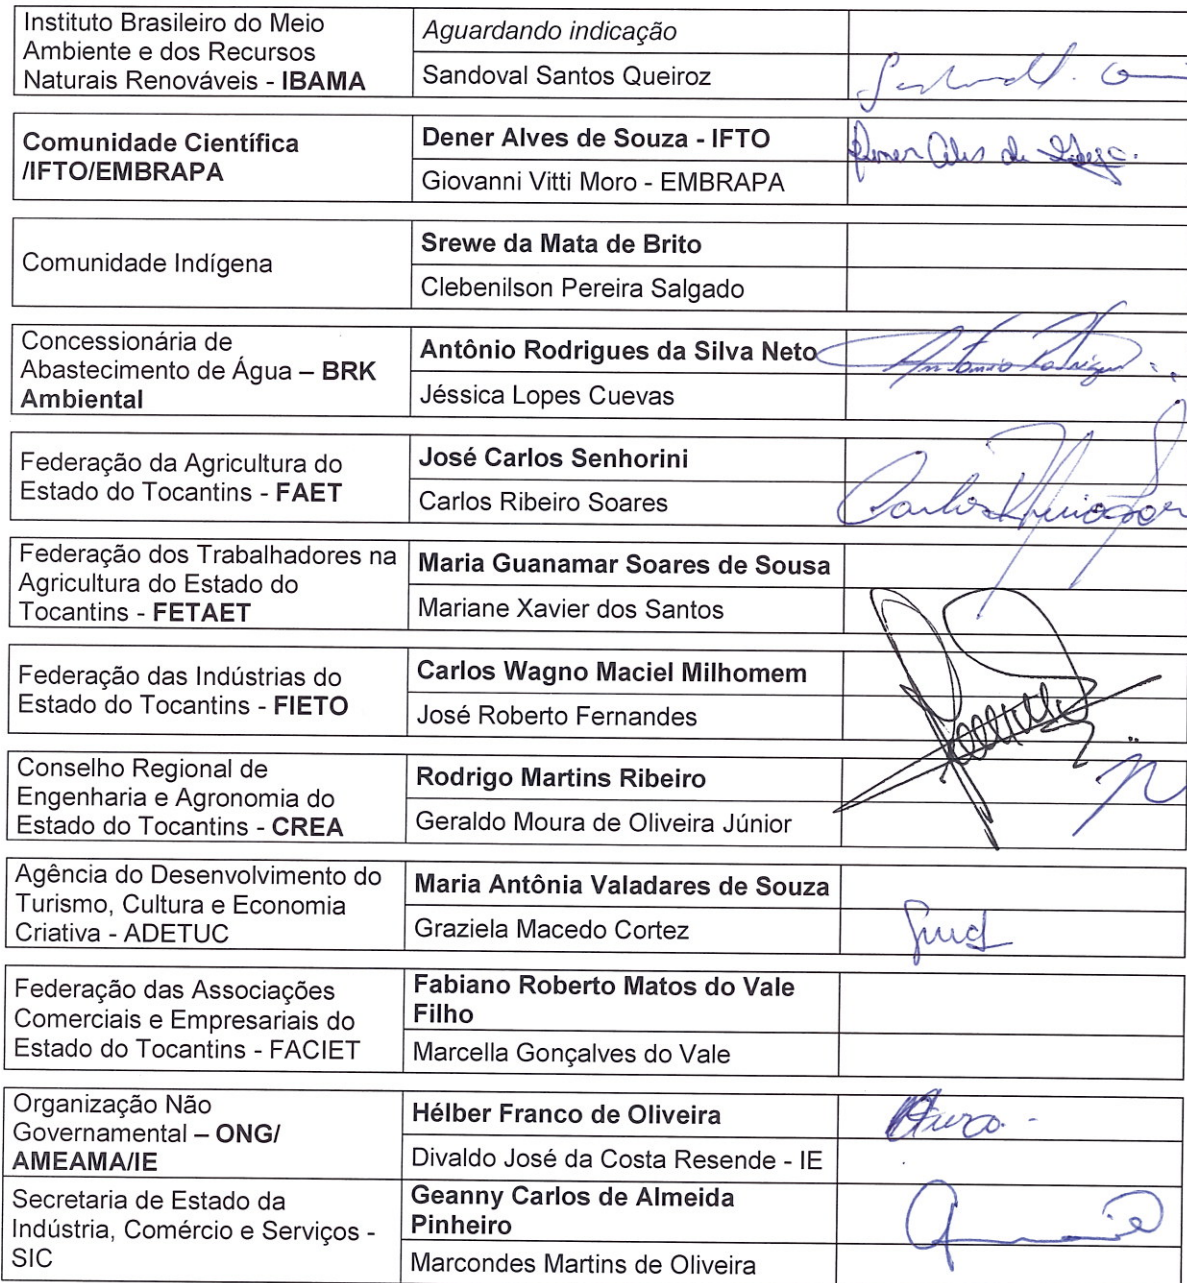 Instituto Brasileiro do Meio
Ambiente e dos Recursos
Naturais Renováveis - IBAMA
Aguardando indicação
Sandoval Santos Queiroz
Comunidade Científica
/IFTO/EMBRAPA
Dener Alves de Souza - IFTO
Dener Alves de Souza.
Giovanni Vitti Moro - EMBRAPA
Comunidade Indígena
Srewe da Mata de Brito
Clebenilson Pereira Salgado
Concessionária de
Abastecimento de Água – BRK
Ambiental
Antônio Rodrigues da Silva Neto
Antonio Rodrigues
Jéssica Lopes Cuevas
Federação da Agricultura do
Estado do Tocantins - FAET
José Carlos Senhorini
Carlos Ribeiro Soares
Carlos
Federação dos Trabalhadores na
Agricultura do Estado do
Tocantins - FETAET
Maria Guanamar Soares de Sousa
Mariane Xavier dos Santos
Federação das Indústrias do
Estado do Tocantins - FIETO
Carlos Wagno Maciel Milhomem
José Roberto Fernandes
Conselho Regional de
Engenharia e Agronomia do
Estado do Tocantins - CREA
Rodrigo Martins Ribeiro
Geraldo Moura de Oliveira Júnior
Agência do Desenvolvimento do
Turismo, Cultura e Economia
Criativa - ADETUC
Maria Antônia Valadares de Souza
Graziela Macedo Cortez
Federação das Associações
Comerciais e Empresariais do
Estado do Tocantins - FACIET
Fabiano Roberto Matos do Vale
Filho
Marcella Gonçalves do Vale
Organização Não
Governamental – ONG/
AMEAMA/IE
Hélber Franco de Oliveira
Divaldo José da Costa Resende - IE
Secretaria de Estado da
Indústria, Comércio e Serviços -
SIC
Geanny Carlos de Almeida
Pinheiro
Marcondes Martins de Oliveira